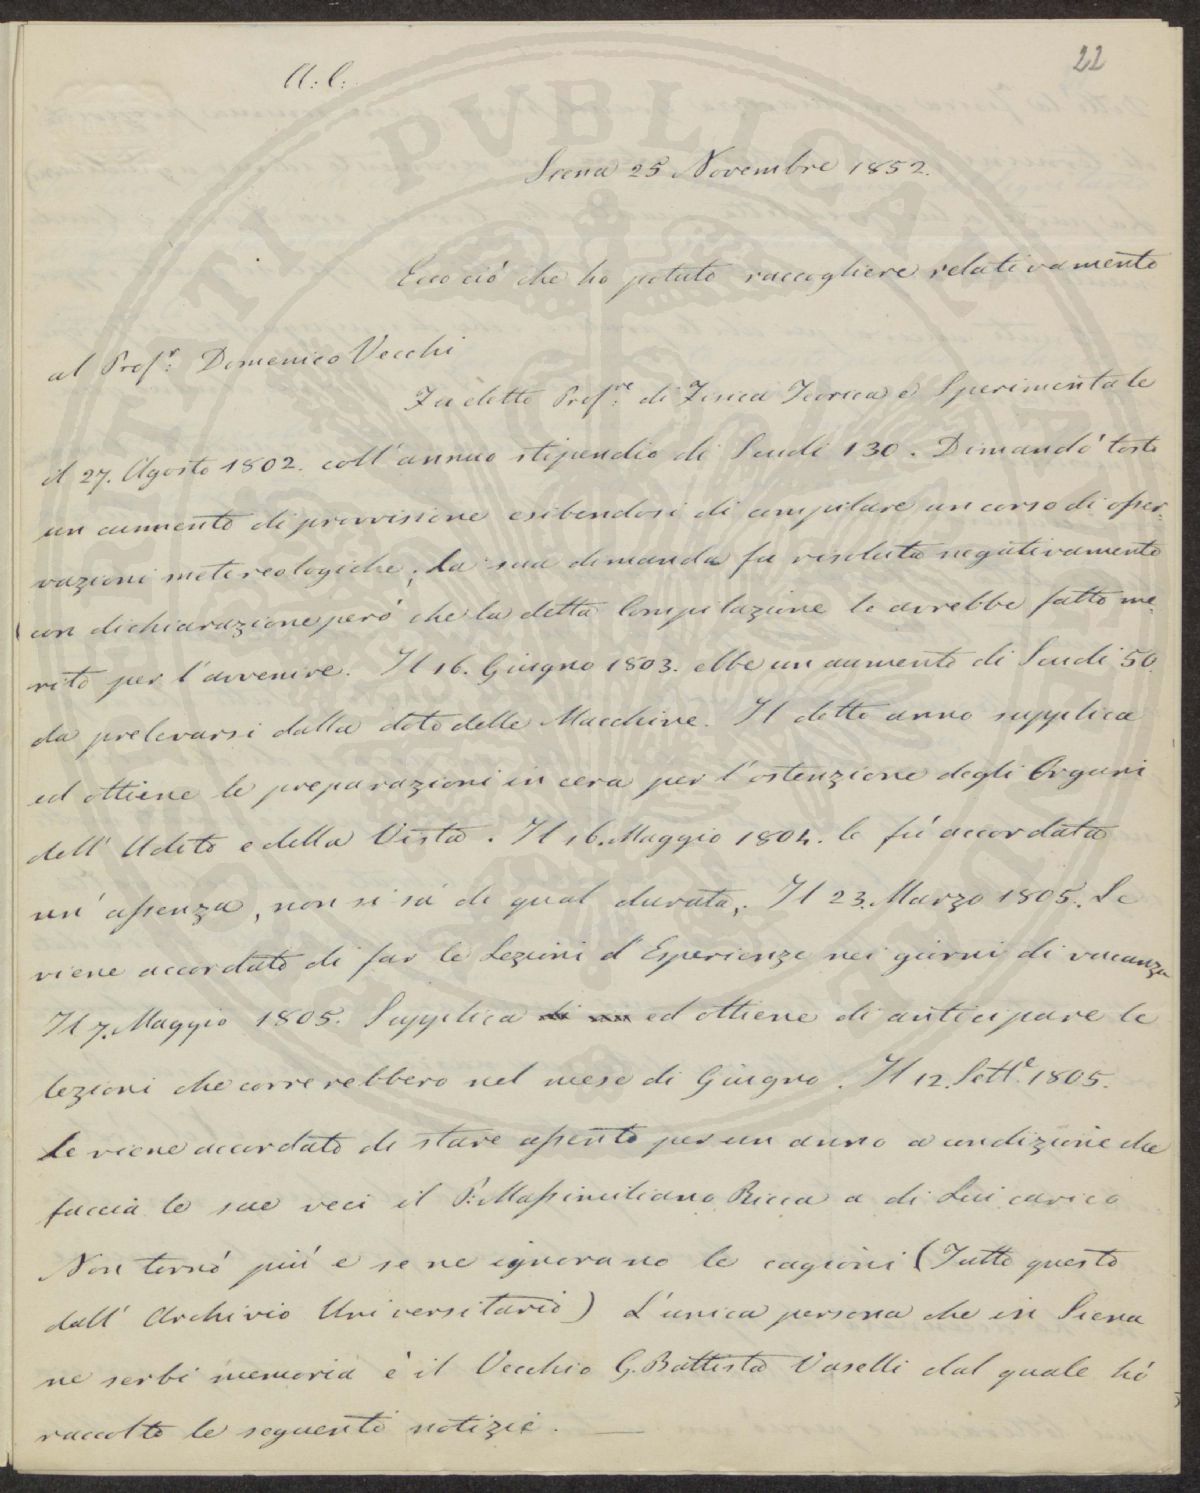 22
A: C:
Siena 25 Novembre 1852.
Ecco ciò che ho potuto raccogliere relativamente
al Prof.r: Domenico Vecchi
Fu eletto Prof.re: di Fisica Teorica e Sperimentale
il 27. Agosto 1802. coll'annuo stipendio di Scudi 130. Dimandò tosto
un aumento di provvisione esibendosi di compilare un corso di osser-
vazioni metereologiche; La sua dimanda fu risoluta negativamente
con dichiarazione però che la detta Compilazione le avrebbe fatto me-
rito per l'avvenire. Il 16. Giugno 1803. ebbe un aumento di Scudi 50
da prelevarsi dalla dote delle Macchine. Il detto anno supplica
ed ottiene le preparazioni in cera per l'ostenzione degli Organi
dell'Udito e della Vista. Il 16. Maggio 1804. le fù accordata
un'assenza, non si sà di qual durata. Il 23. Marzo 1805. Le
viene accordato di far le Lezioni d'Esperienze nei giorni di vacanza
Il 7. Maggio 1805. Supplica ed ottiene di anticipare le
lezioni che correrebbero nel mese di Giugno. Il 12. Sett.e 1805.
Le viene accordato di stare assente per un anno a condizione che
faccia le sue veci il P: Massimiliano Ricca a di Lui carico
Non tornò più e se ne ignorano le cagioni (Tutto questo
dall'Archivio Universitario) L'unica persona che in Siena
ne serbi memoria è il Vecchio G. Battista Vaselli dal quale hò
raccolto le seguenti notizie. —
PVBLICAT